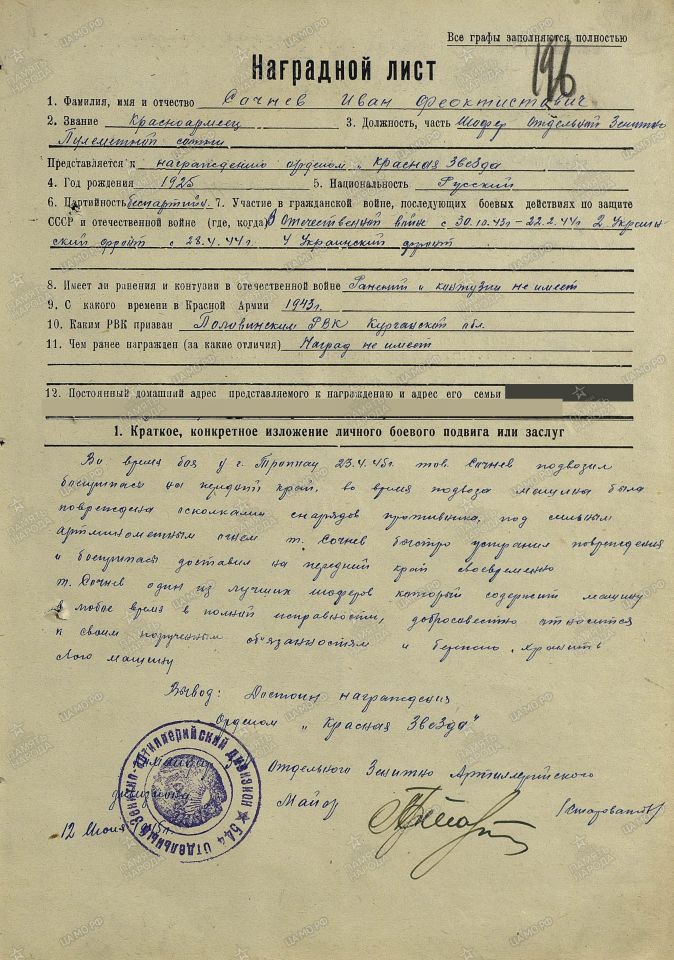 Все графы заполняются полностью
196
Наградной лист
1. Фамилия, имя и отчество Сочнев Иван Феоктистович
2. Звание Красноармеец 3. Должность, часть Шофер Отдельной Зенитно
Пулеметной сотни
Представляется к награждению орденом „Красная Звезда
4. Год рождения 1925 5. Национальность Русский
6. Партийность беспартийн. 7. Участие в гражданской войне, последующих боевых действиях по защите
СССР и отечественной войне (где, когда) В Отечественной войне с 30.10.43г - 22.2.44г 2 Украин-
ский фронт с 28.4.44г. 4 Украинский фронт
8. Имеет ли ранения и контузии в отечественной войне Ранений и контузии не имеет
9. С какого времени в Красной Армии 1943г.
10. Каким РВК призван Половинским РВК Курганской обл.
11. Чем ранее награжден (за какие отличия) Наград не имеет
12. Постоянный домашний адрес представляемого к награждению и адрес его семьи
1. Краткое, конкретное изложение личного боевого подвига или заслуг
Во время боя у г. Троппау 23.4.45г тов. Сочнев подвозил
боеприпасы на передний край, во время подвоза машина была
повреждена осколками снарядов противника, под сильным
артминометным огнем т. Сочнев быстро устранил повреждения
и боеприпасы доставил на передний край своевременно
т. Сочнев один из лучших шоферов который содержит машину
в любое время в полной исправности, добросовестно относится
к своим порученным об'язанностям и бережно хранить
свою машину
Вывод: Достоин награждения
Орденом „Красная Звезда"
Отдельного Зенитно Артиллерийского
дивизиона Майор
12 Июня 45г.
544 ОТДЕЛЬНЫЙ ЗЕНИТНО-АРТИЛЛЕРИЙСКИЙ ДИВИЗИОН
ПАМЯТЬ НАРОДА
ЦАМО.РФ